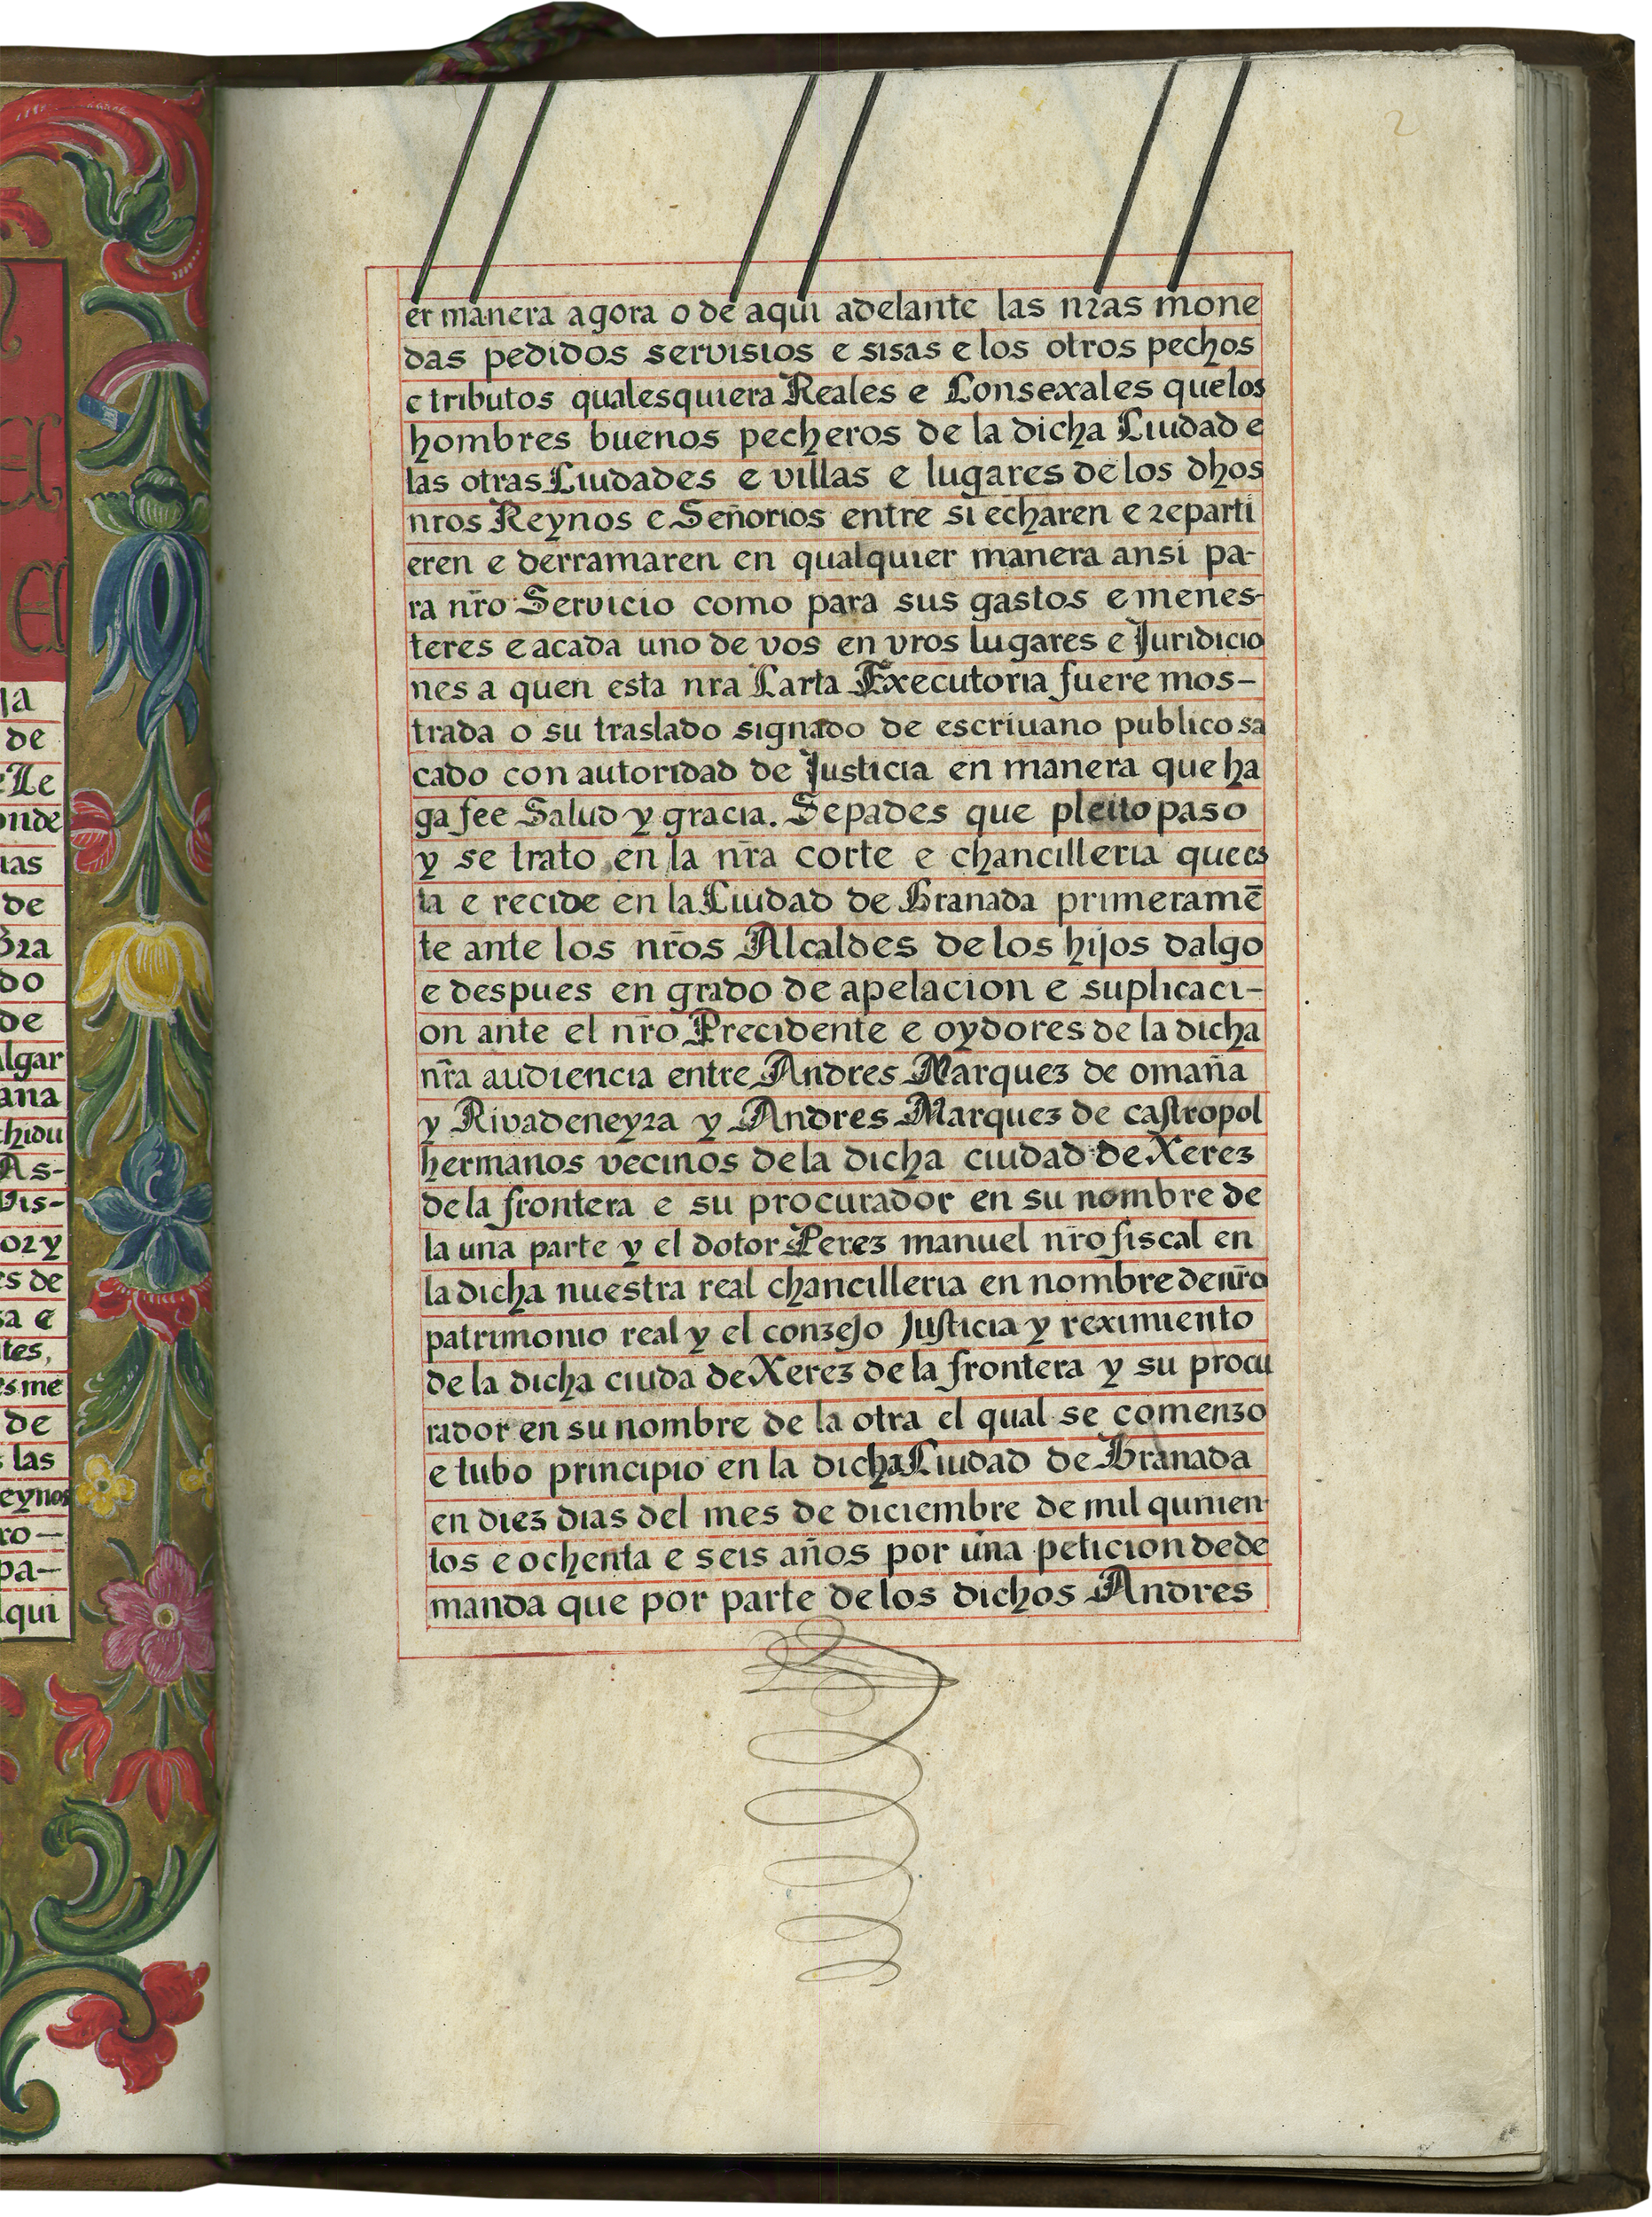 ja
de
e Le
onde
uas
de
bra
do
de
algar
ana
chidu
As-
Vis-
or y
es de
sa e
tes,
es me
de
s las
eynos
ro—
pa—
lqui
2
er manera agora o de aqui adelante las nras mone
das pedidos servisios e sisas e los otros pechos
e tributos qualesquiera Reales e Consexales que los
hombres buenos pecheros de la dicha Ciudad e
las otras Ciudades e villas e lugares de los dhos
nros Reynos e Señorios entre si echaren e reparti
eren e derramaren en qualquier manera ansi pa-
ra nro Servicio como para sus gastos e menes-
teres e a cada uno de vos en vros lugares e Juridicio
nes a quen esta nra Carta Executoria fuere mos-
trada o su traslado signado de escriuano publico sa
cado con autoridad de Justicia en manera que ha
ga fee Salud y gracia. Sepades que pleito paso
y se trato en la nra corte e chancilleria que es
ta e recide en la Ciudad de Granada primeramē
te ante los nros Alcaldes de los hijos dalgo
e despues en grado de apelacion e suplicaci-
on ante el nro Precidente e oydores de la dicha
nra audiencia entre Andres Marquez de omaña
y Rivadeneyra y Andres Marquez de castropol
hermanos vecinos de la dicha ciudad de Xerez
de la frontera e su procurador en su nombre de
la una parte y el dotor Perez manuel nro fiscal en
la dicha nuestra real chancilleria en nombre de nro
patrimonio real y el conzejo Justicia y reximiento
de la dicha ciuda de Xerez de la frontera y su procu
rador en su nombre de la otra el qual se comenzo
e tubo principio en la dicha Ciudad de Granada
en diez dias del mes de diciembre de mil quinien-
tos e ochenta e seis años por una peticion de de
manda que por parte de los dichos Andres